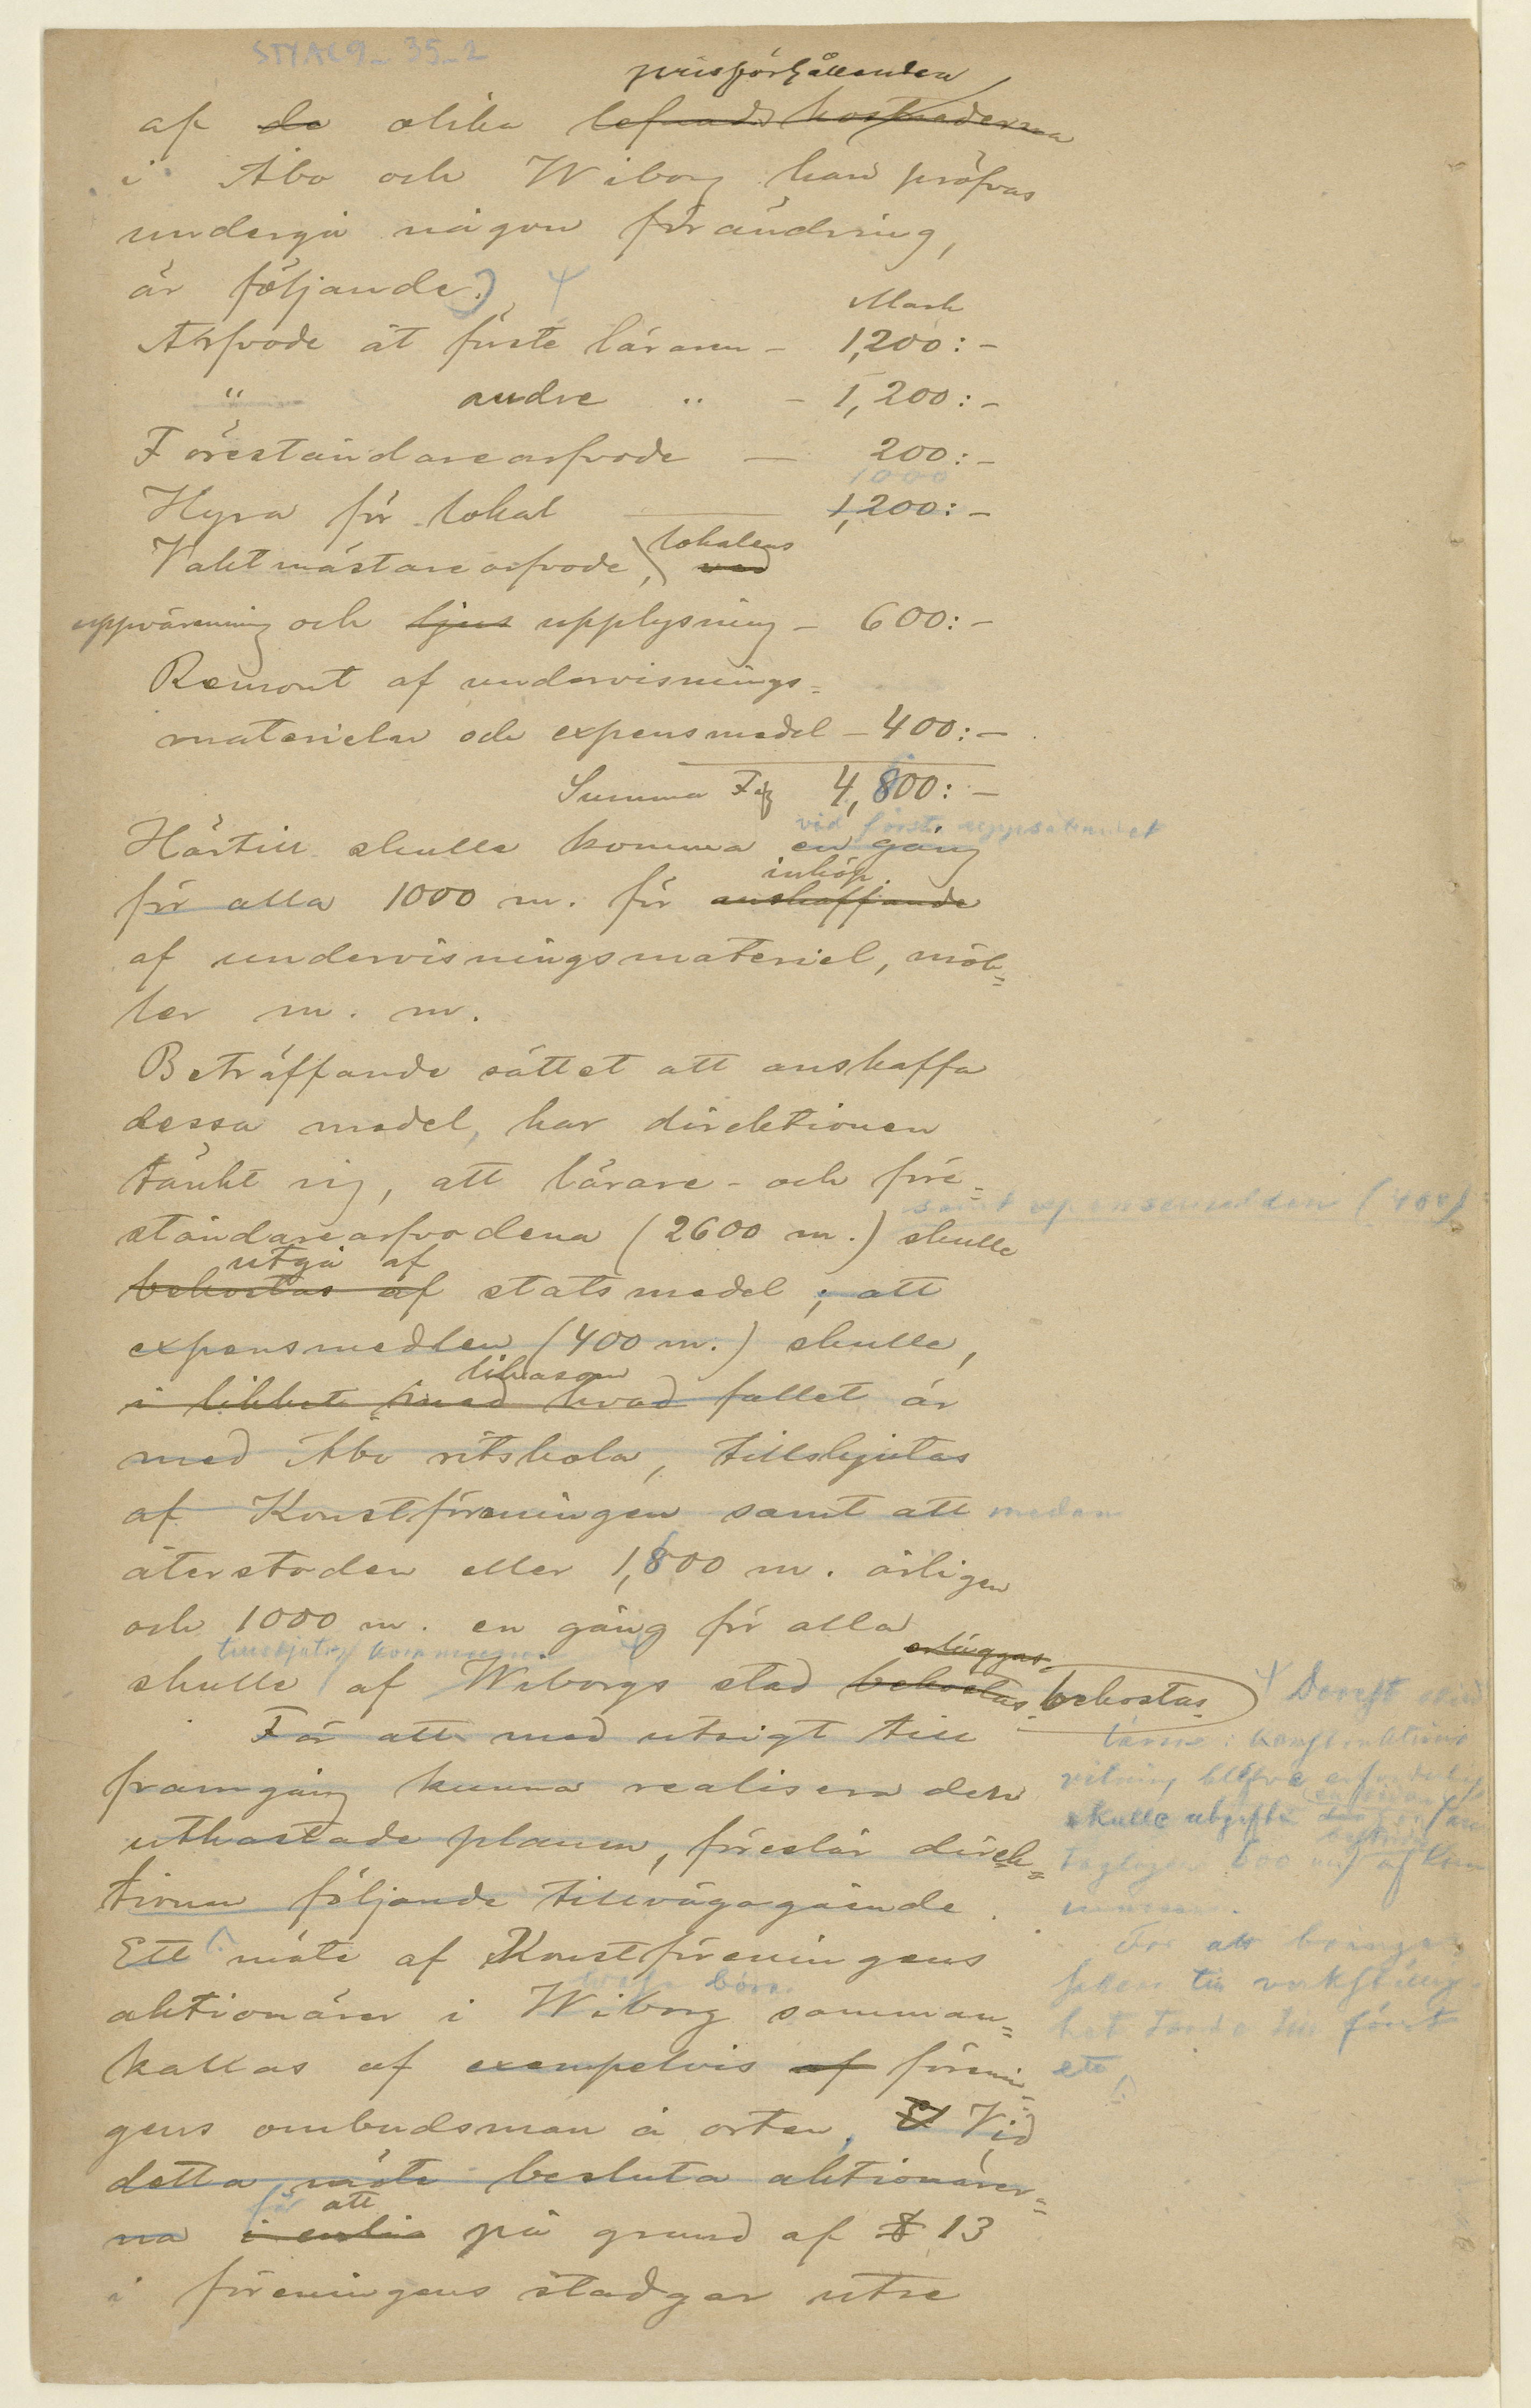 STYAC9_35_2
prisförhållanden
af de olika lefnadskostnaderna
i Åbo och Wiborg kan pröfvas
undergå någon förändring,
är följande:)
Mark
Arfvode åt förste läraren – 1,200: –
" andre " – 1,200: –
Föreståndarearfvode — 200: –
1000
Hyra för lokal — 1,200: –
lokalens
Vaktmästarearfvode, ved
uppvärmning och ljus upplysning – 600: –
Remont af undervisnings=
materielen och expensmedel – 400: –
Summa Fmk 4,800: –
vid första uppsättandet
Härtill skulle komma en gång
inköp
för alla 1000 m. för anskaffande
af undervisningsmateriel, möb=
ler m. m.
Beträffande sättet att anskaffa
dessa medel, har direktionen
tänkt sig, att lärare- och före=
samt expensmedlen (400)
ståndarearfvodena (2600 m.) skulle
utgå af
bekostas af statsmedel; att
expensmedlen (400 m.) skulle,
likasom
i likhet med hvad fallet är
med Åbo ritskola, tillskjutas
af Konstföreningen samt att medan
återstoden eller 1,800 m. årligen
och 1000 m. en gång för alla
erläggas.
skulle af Wiborgs stad bekostas. bekostas.
För att med utsigt till
framgång kunna realisera den
uthastade planen, föreslår direk=
tionen följande tillvägagående.
Ett möte af Konstföreningens
aktionärer i Wiborg samman=
kallas af exempelvis af förenin=
gens ombudsman å orten. Vid
detta möte besluta aktionärer=
för att
na i enli på grund af § 13
i föreningens stadgar utse
Derest
skulle utgifte
af kom
För att bringa
saken till verkställig-
het torde till först
ett